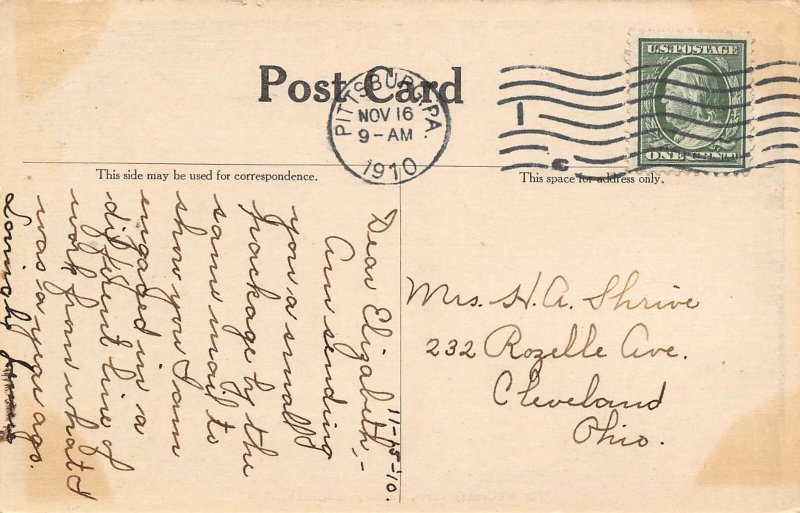 Post Card
PITTSBURG, PA.
NOV 16
9-AM
1910
1
U.S. POSTAGE
ONE
This side may be used for correspondence.
This space for address only.
11-15-10.
Dear Elizabeth,-
Am sending
you a small
package by the
same mail to
show you I am
engaged in a
different line of
work from what I
was a year ago.
Mrs. H. A. Shrive
232 Rozelle Ave.
Cleveland
Ohio.